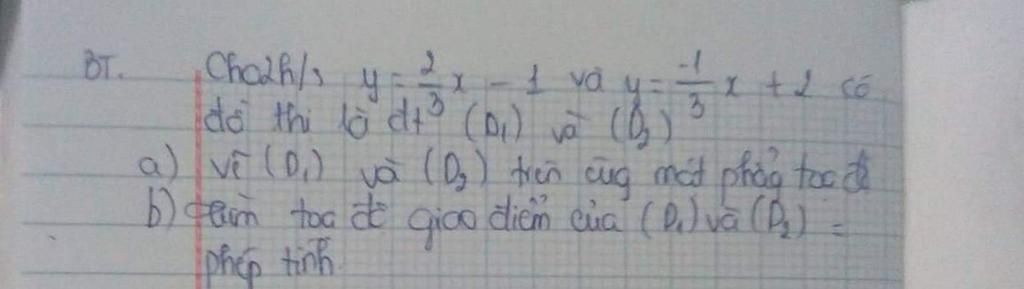 BT. Cho 2 h/s y = 2/3 x - 1 và y = -1/3 x + 2 có
đồ thị là đt (D₁) và (D₂)
a) vẽ (D₁) và (D₂) trên cùg một phẳg toạ độ
b) tìm toạ độ giao điểm của (D₁) và (D₂) =
phép tính.